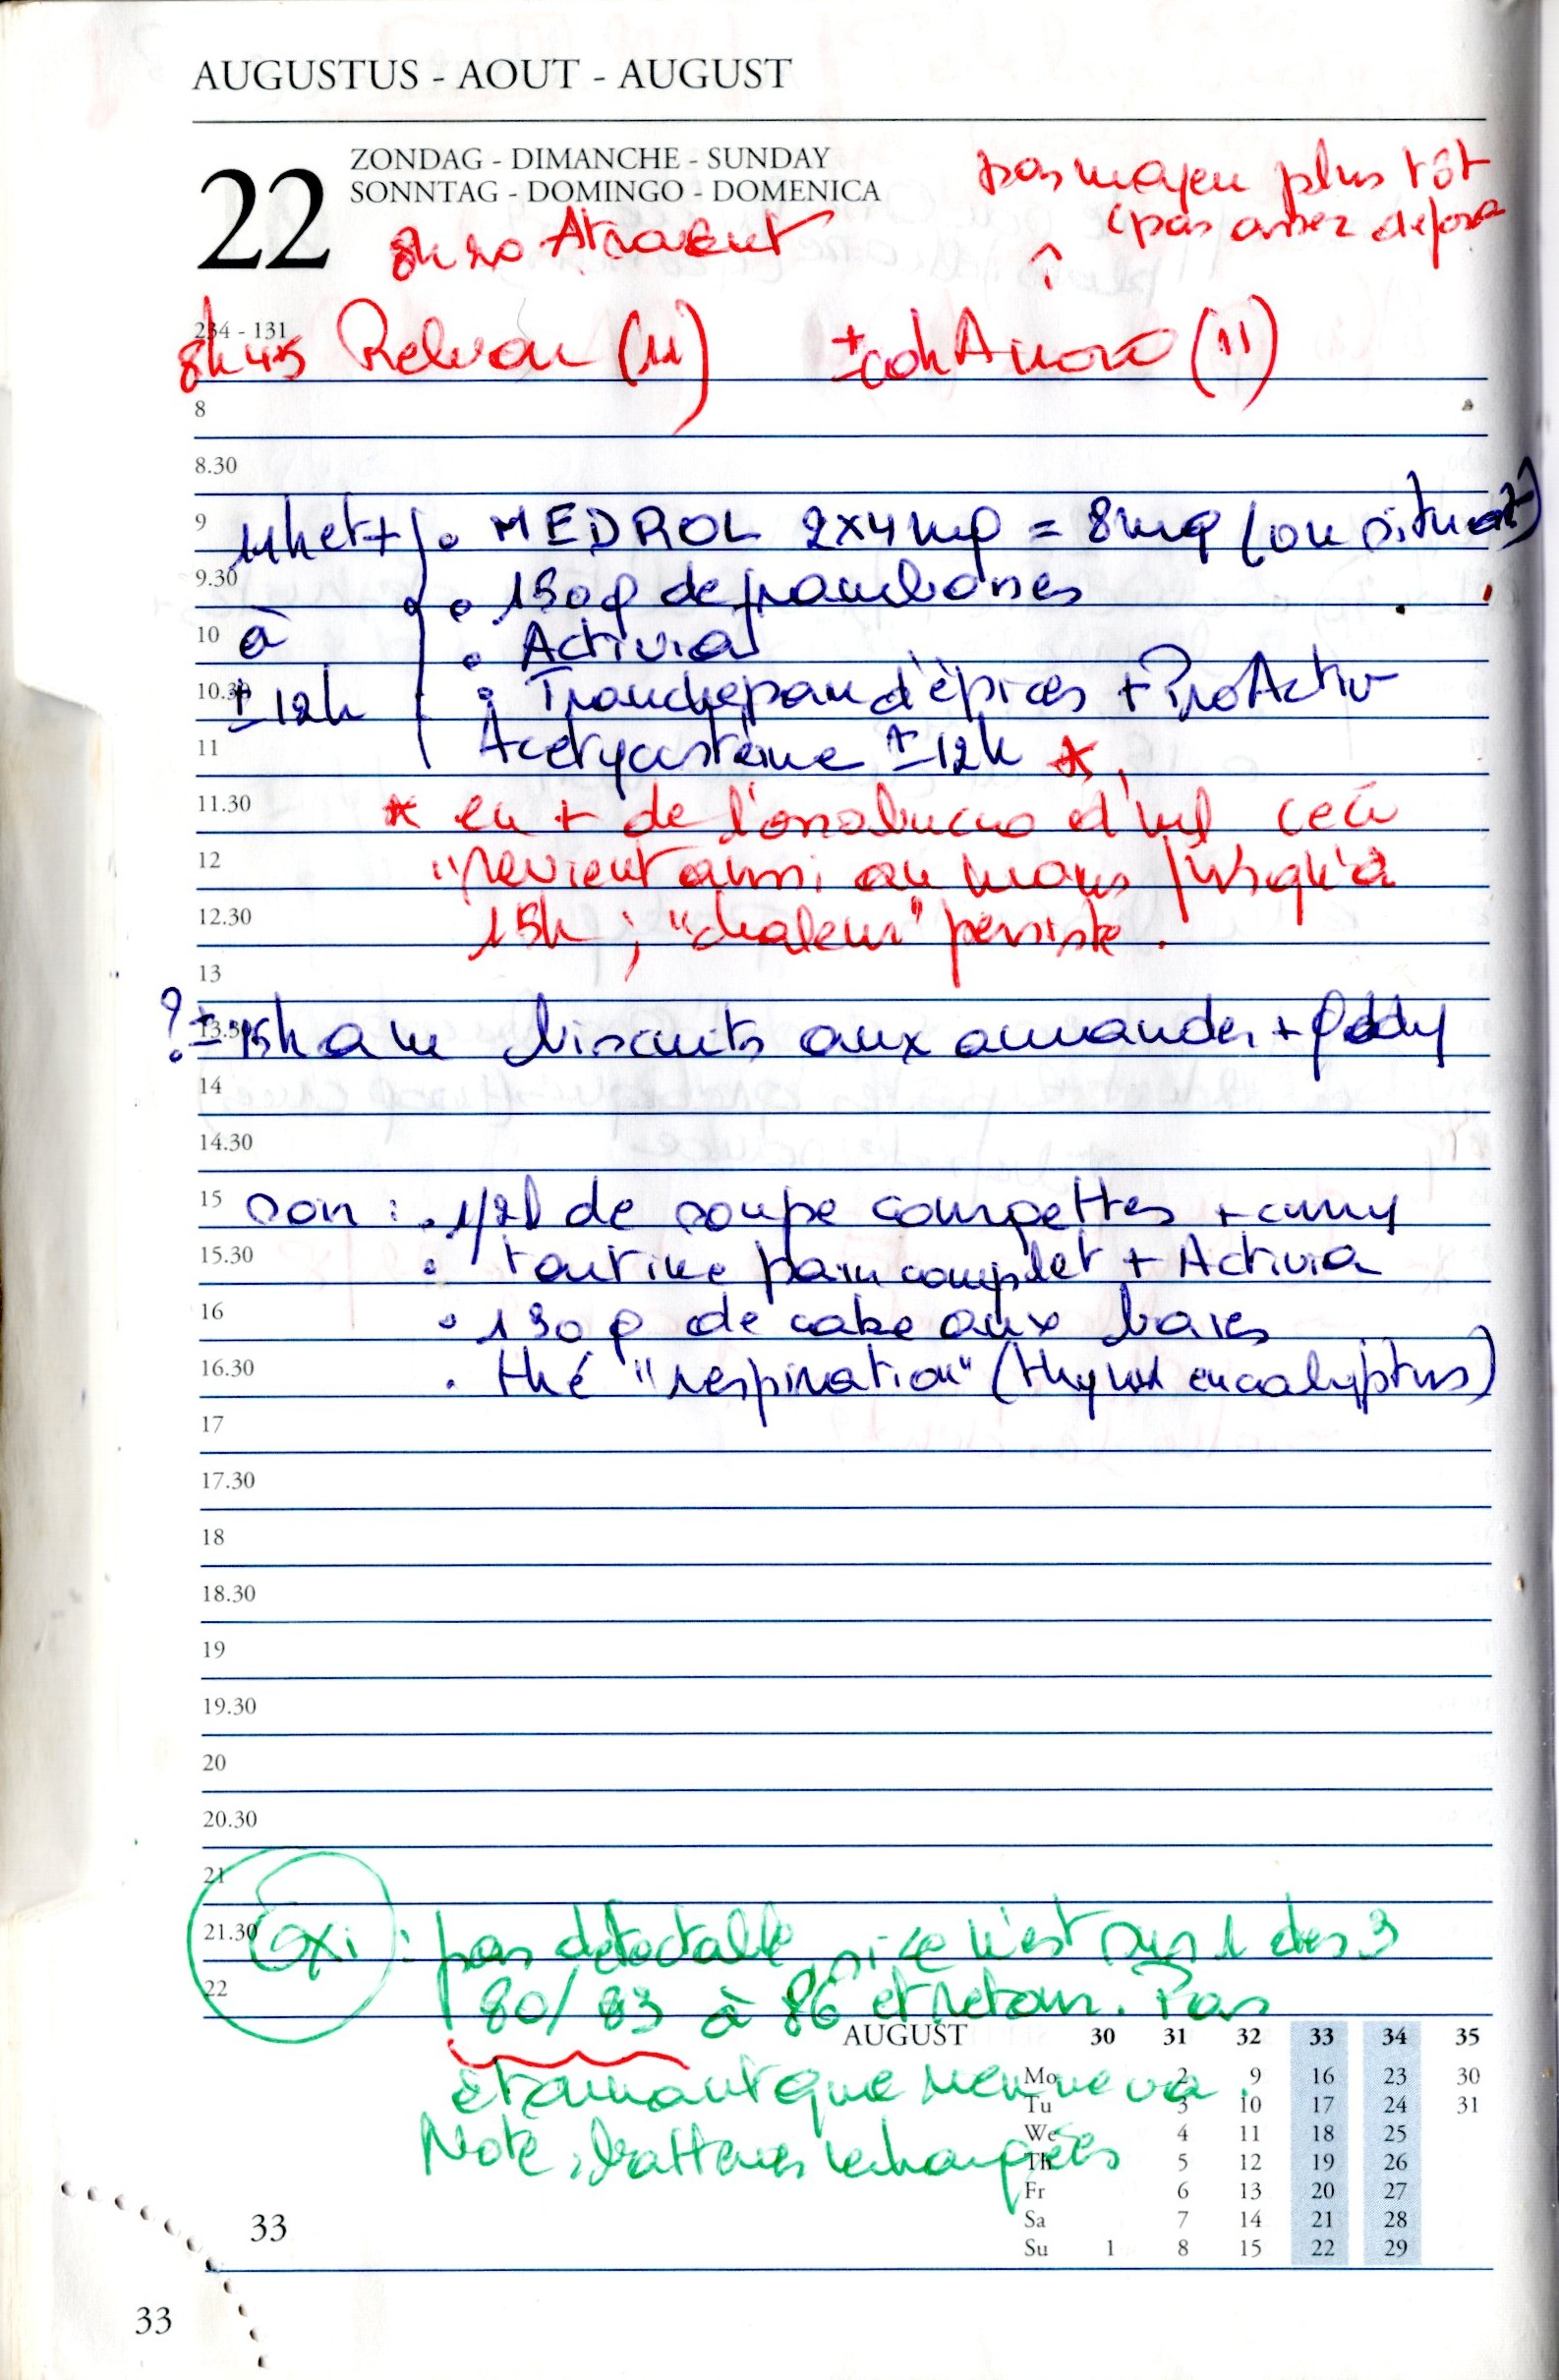 AUGUSTUS - AOUT - AUGUST
22
ZONDAG - DIMANCHE - SUNDAY
SONNTAG - DOMINGO - DOMENICA
pas moyen plus tôt
(pas assez de force
8h20 Atrovent
234 - 131
8h45 Relvar (11) ± Anoro (11)
8
8.30
9
11h et + . MEDROL 2x4mg = 8mg (
9.30
. 150g de framboises
10
à . Activia
10.30
± 12h . Tranche pain d'épices + ProActiv
11
Acétycistéine ± 12h *
11.30
* en + de l' d' ceci
12
"revient aussi au moins jusqu'à
12.30
15h ; "chaleur" persiste .
13
13.30
? ± 15h biscuits aux amandes +
14
14.30
15
soir : . 1/2 l de soupe courgettes + curry
15.30
. tartine pain complet + Activia
16
. 130 g de cake aux baies
16.30
. thé "respiration" (thym eucalyptus)
17
17.30
18
18.30
19
19.30
20
20.30
21
21.30
Oxi : pas détectable si ce n'est sur 1 des 3
22
80/83 à 86 et retour. Pas
étonnant que rien ne va.
Note : batteries rechargées
AUGUST 30 31 32 33 34 35
Mo 2 9 16 23 30
Tu 3 10 17 24 31
We 4 11 18 25
Th 5 12 19 26
Fr 6 13 20 27
Sa 7 14 21 28
Su 1 8 15 22 29
33
33